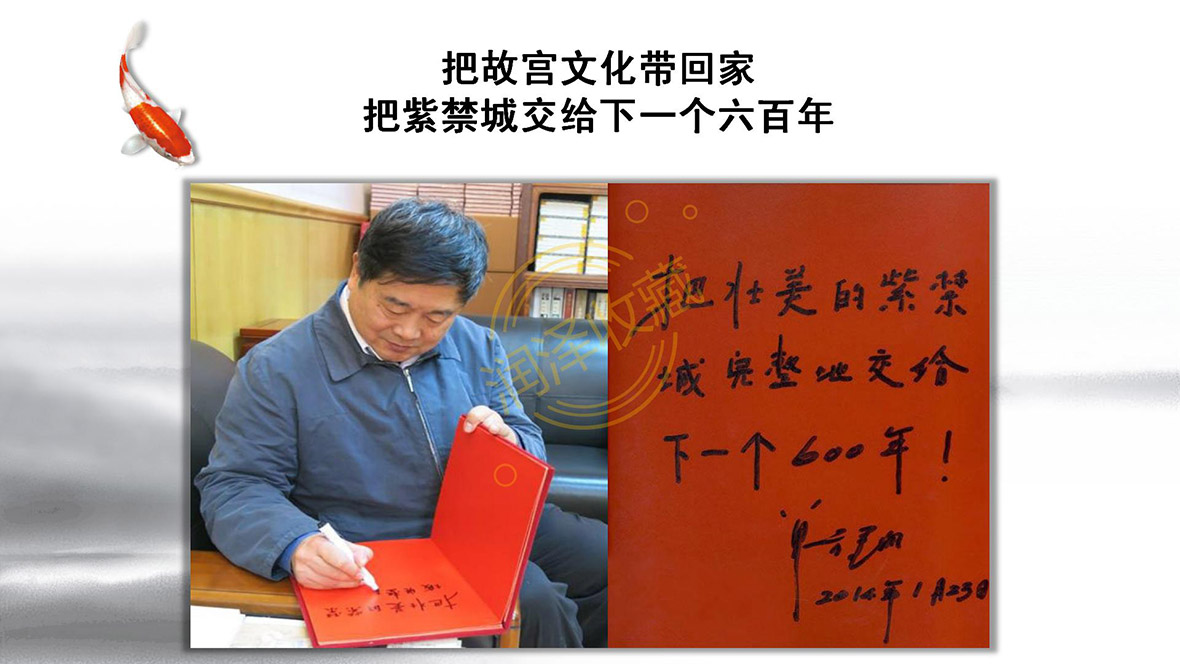 把故宫文化带回家
把紫禁城交给下一个六百年
把壮美的紫禁
城完整地交给
下一个600年！
单霁翔
把壮美的紫禁
城完整
润泽收藏